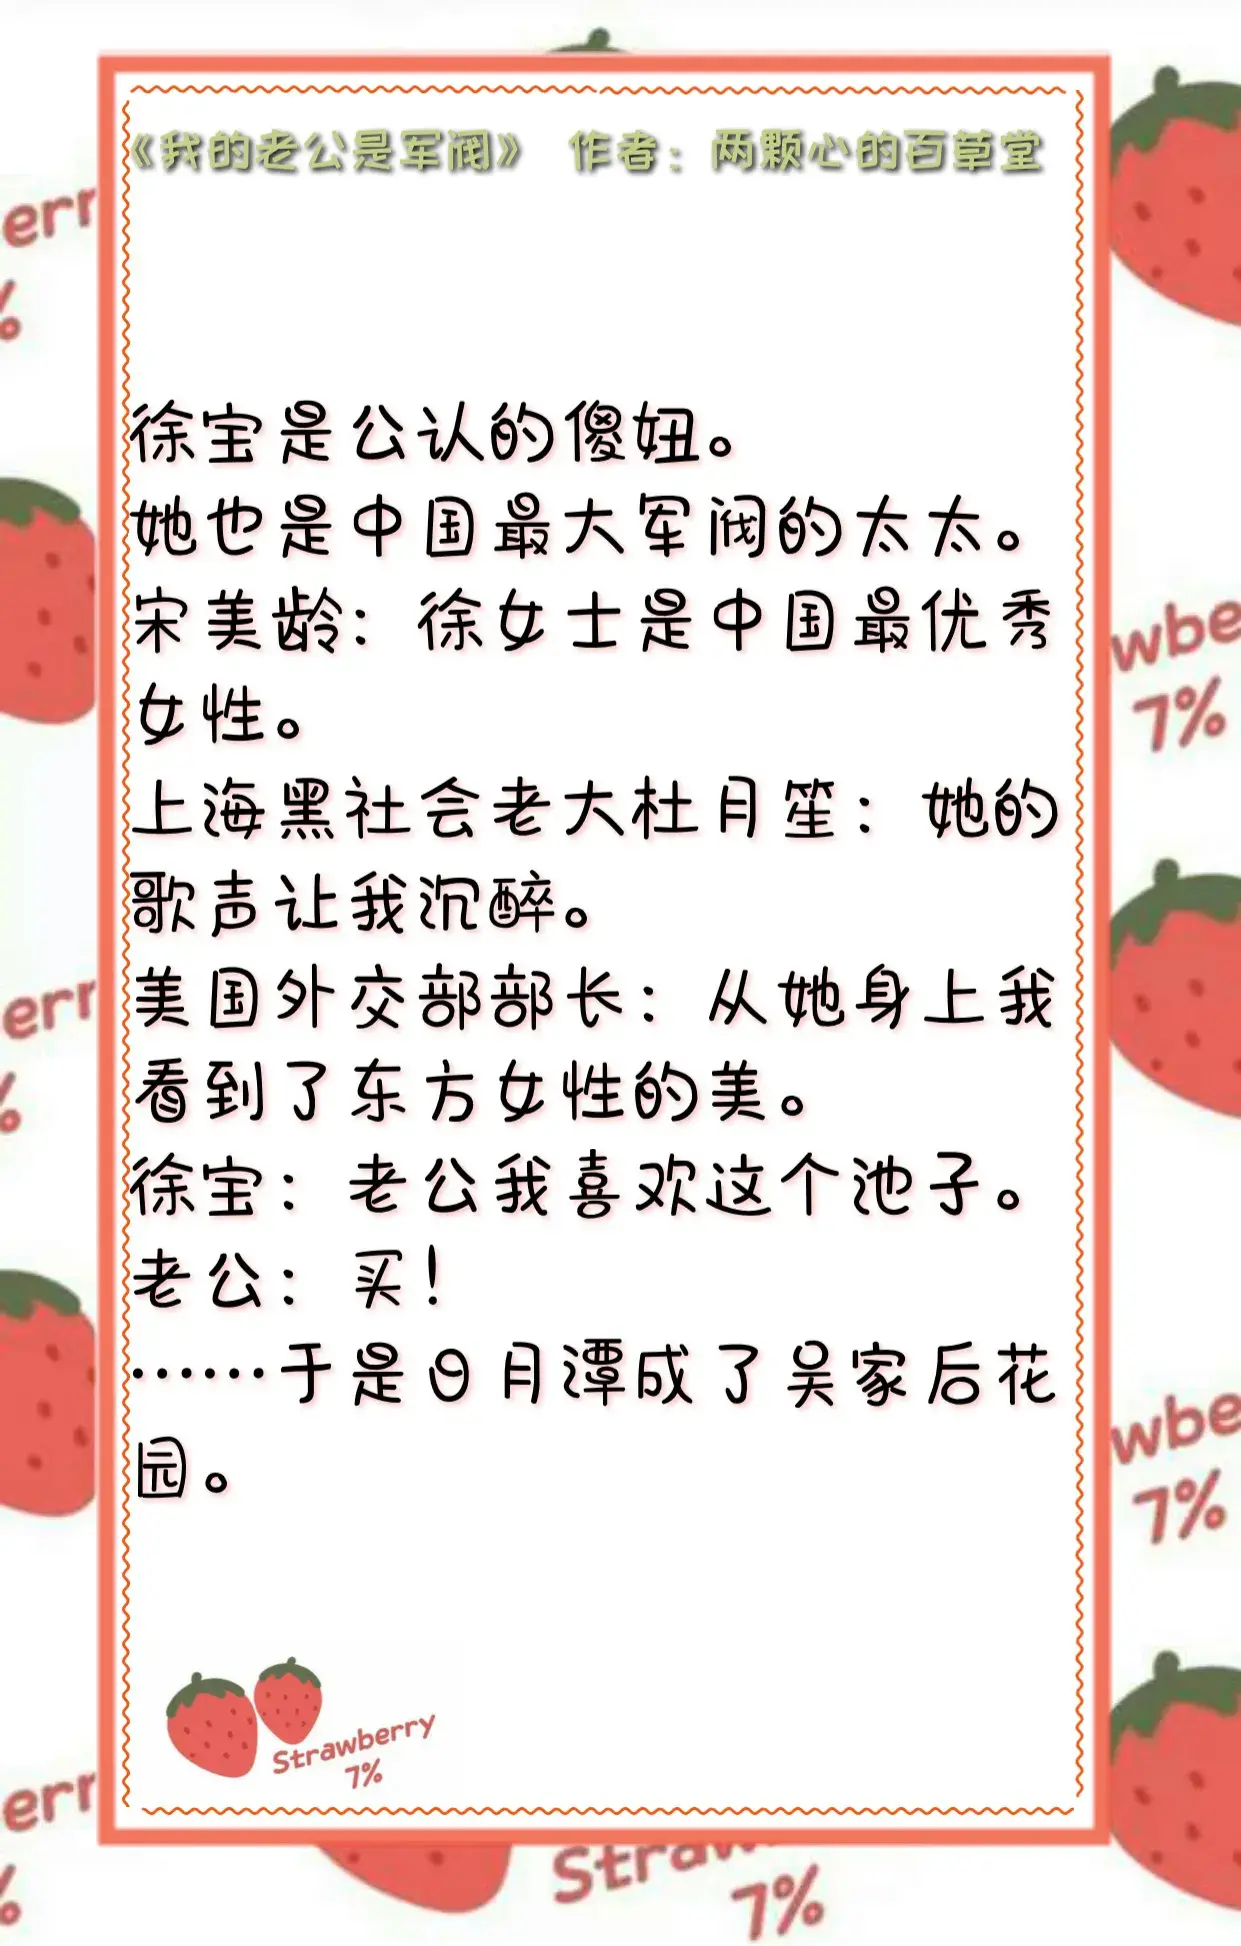 《我的老公是军阀》 作者：两颗心的百草堂
徐宝是公认的傻妞。
她也是中国最大军阀的太太。
宋美龄：徐女士是中国最优秀
女性。
上海黑社会老大杜月笙：她的
歌声让我沉醉。
美国外交部部长：从她身上我
看到了东方女性的美。
徐宝：老公我喜欢这个池子。
老公：买！
……于是日月潭成了吴家后花
园。
Strawberry
7%
err
%
wbe
7%
err
%
wbe
7%
err
%
Straw
7%